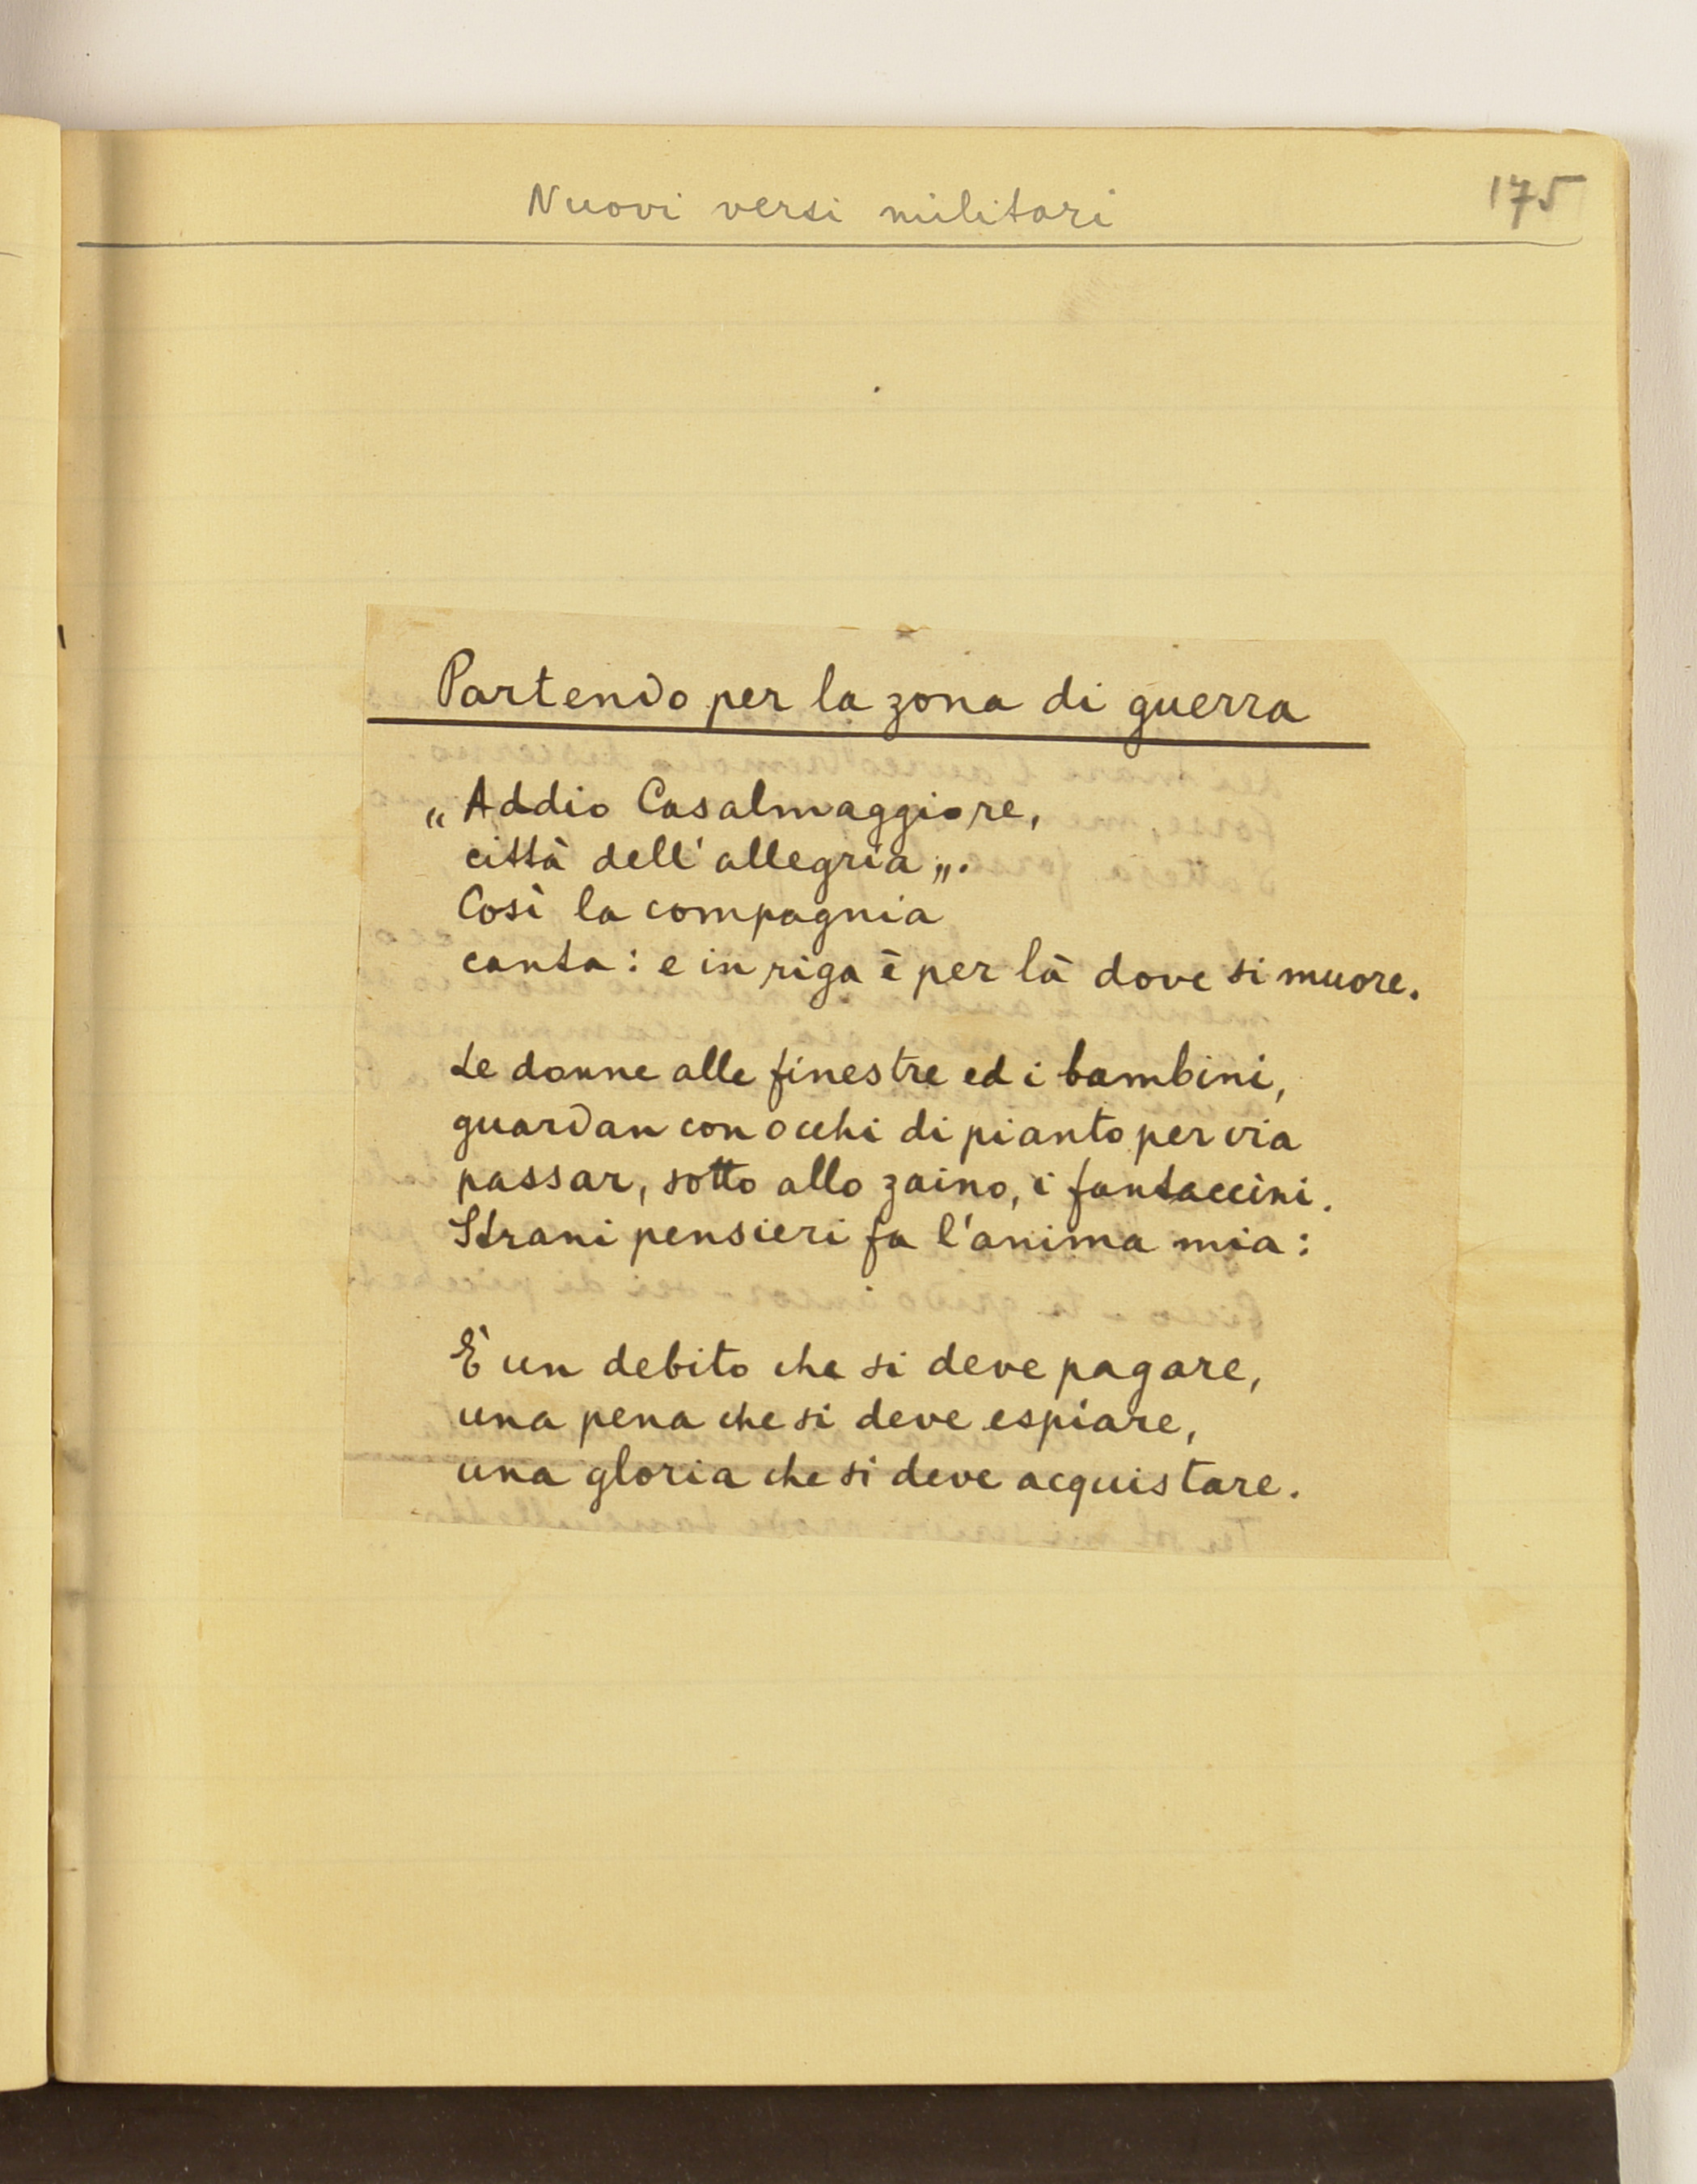 Nuovi versi militari
175
Partendo per la zona di guerra
„Addio Casalmaggiore,
città dell'allegria„.
Così la compagnia
canta: e in riga è per là dove si muore.
Le donne alle finestre ed i bambini,
guardan con occhi di pianto per via
passar, sotto allo zaino, i fantaccini.
Strani pensieri fa l'anima mia:
È un debito che si deve pagare,
una pena che si deve espiare,
una gloria che si deve acquistare.